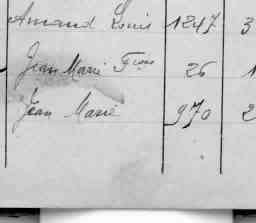 Amand Louis 1247 3
Jean Marie Fçois 26 1
Jean Marie 970 2